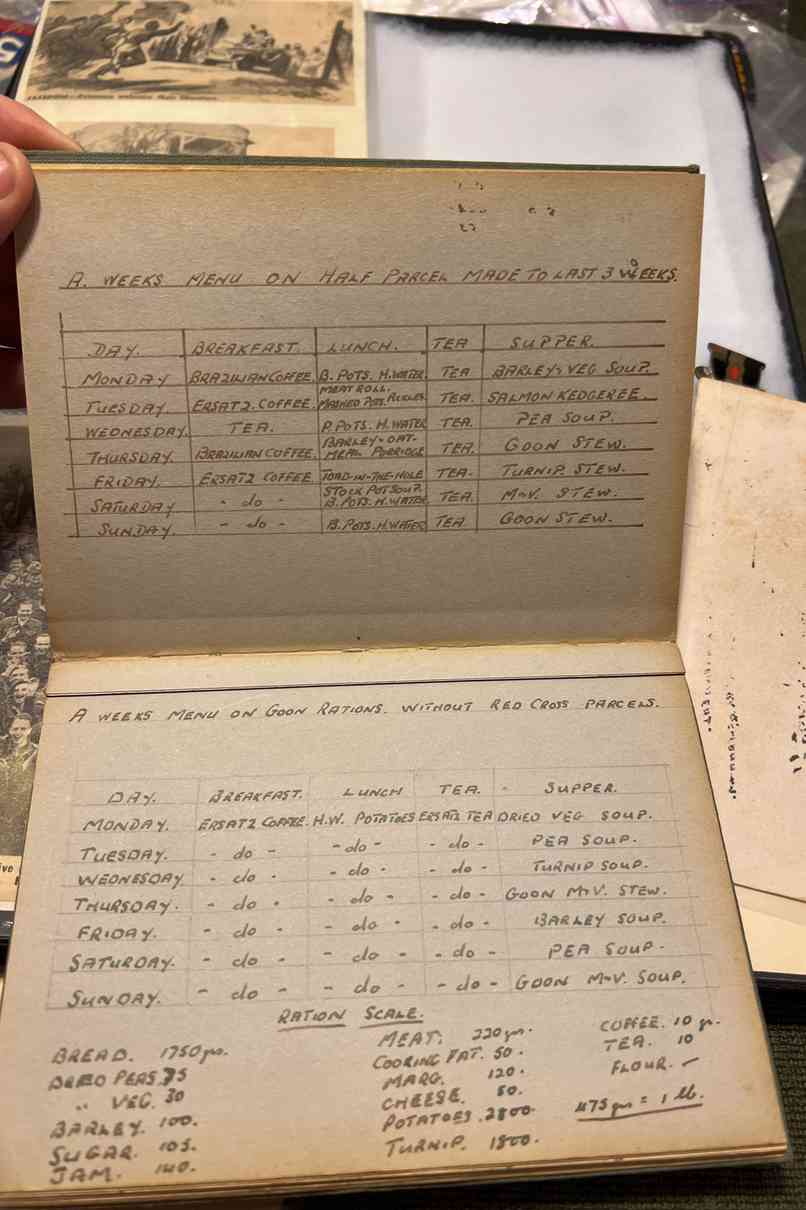 A. WEEKS MENU ON HALF PARCEL MADE TO LAST 3 WEEKS.
DAY. BREAKFAST. LUNCH. TEA SUPPER.
MONDAY BRAZILIAN COFFEE. B. POTS. H.WATER. TEA BARLEY & VEG SOUP.
TUESDAY. ERSATZ. COFFEE. MEAT ROLL. MASHED POTS. PICKLES. TEA. SALMON KEDGEREE.
WEDNESDAY. TEA. P. POTS. H. WATER TEA. PEA SOUP.
THURSDAY. BRAZILIAN COFFEE. BARLEY & OAT- MEAL PORRIDGE TEA. GOON STEW.
FRIDAY. ERSATZ COFFEE. TOAD-IN-THE-HOLE TEA. TURNIP. STEW.
SATURDAY - do - STOCK POT SOUP. B. POTS. H. WATER. TEA. M&V. STEW.
SUNDAY. - do - B. POTS. H.WATER TEA GOON STEW.
A WEEKS MENU ON GOON RATIONS. WITHOUT RED CROSS PARCELS.
DAY. BREAKFAST. LUNCH TEA. SUPPER.
MONDAY. ERSATZ COFFEE. H.W. POTATOES ERSATZ TEA DRIED VEG SOUP.
TUESDAY. - do - - do - - do - PEA SOUP.
WEDNESDAY - do - - do - - do - TURNIP SOUP.
THURSDAY. - do - - do - - do - GOON M&V. STEW.
FRIDAY. - do - - do - - do - BARLEY SOUP.
SATURDAY. - do - - do - - do - PEA SOUP.
SUNDAY. - do - - do - - do - GOON M&V. SOUP.
RATION SCALE.
BREAD. 1750 grs. MEAT. 220 grs. COFFEE. 10 gr.
DRIED PEAS. 75 COOKING FAT. 50. TEA. 10
" VEG. 30 MARG. 120. FLOUR. —
BARLEY. 100. CHEESE. 50.
SUGAR. 105. POTATOES. 2800. 473 grs = 1 lb.
JAM. 140. TURNIP. 1800.